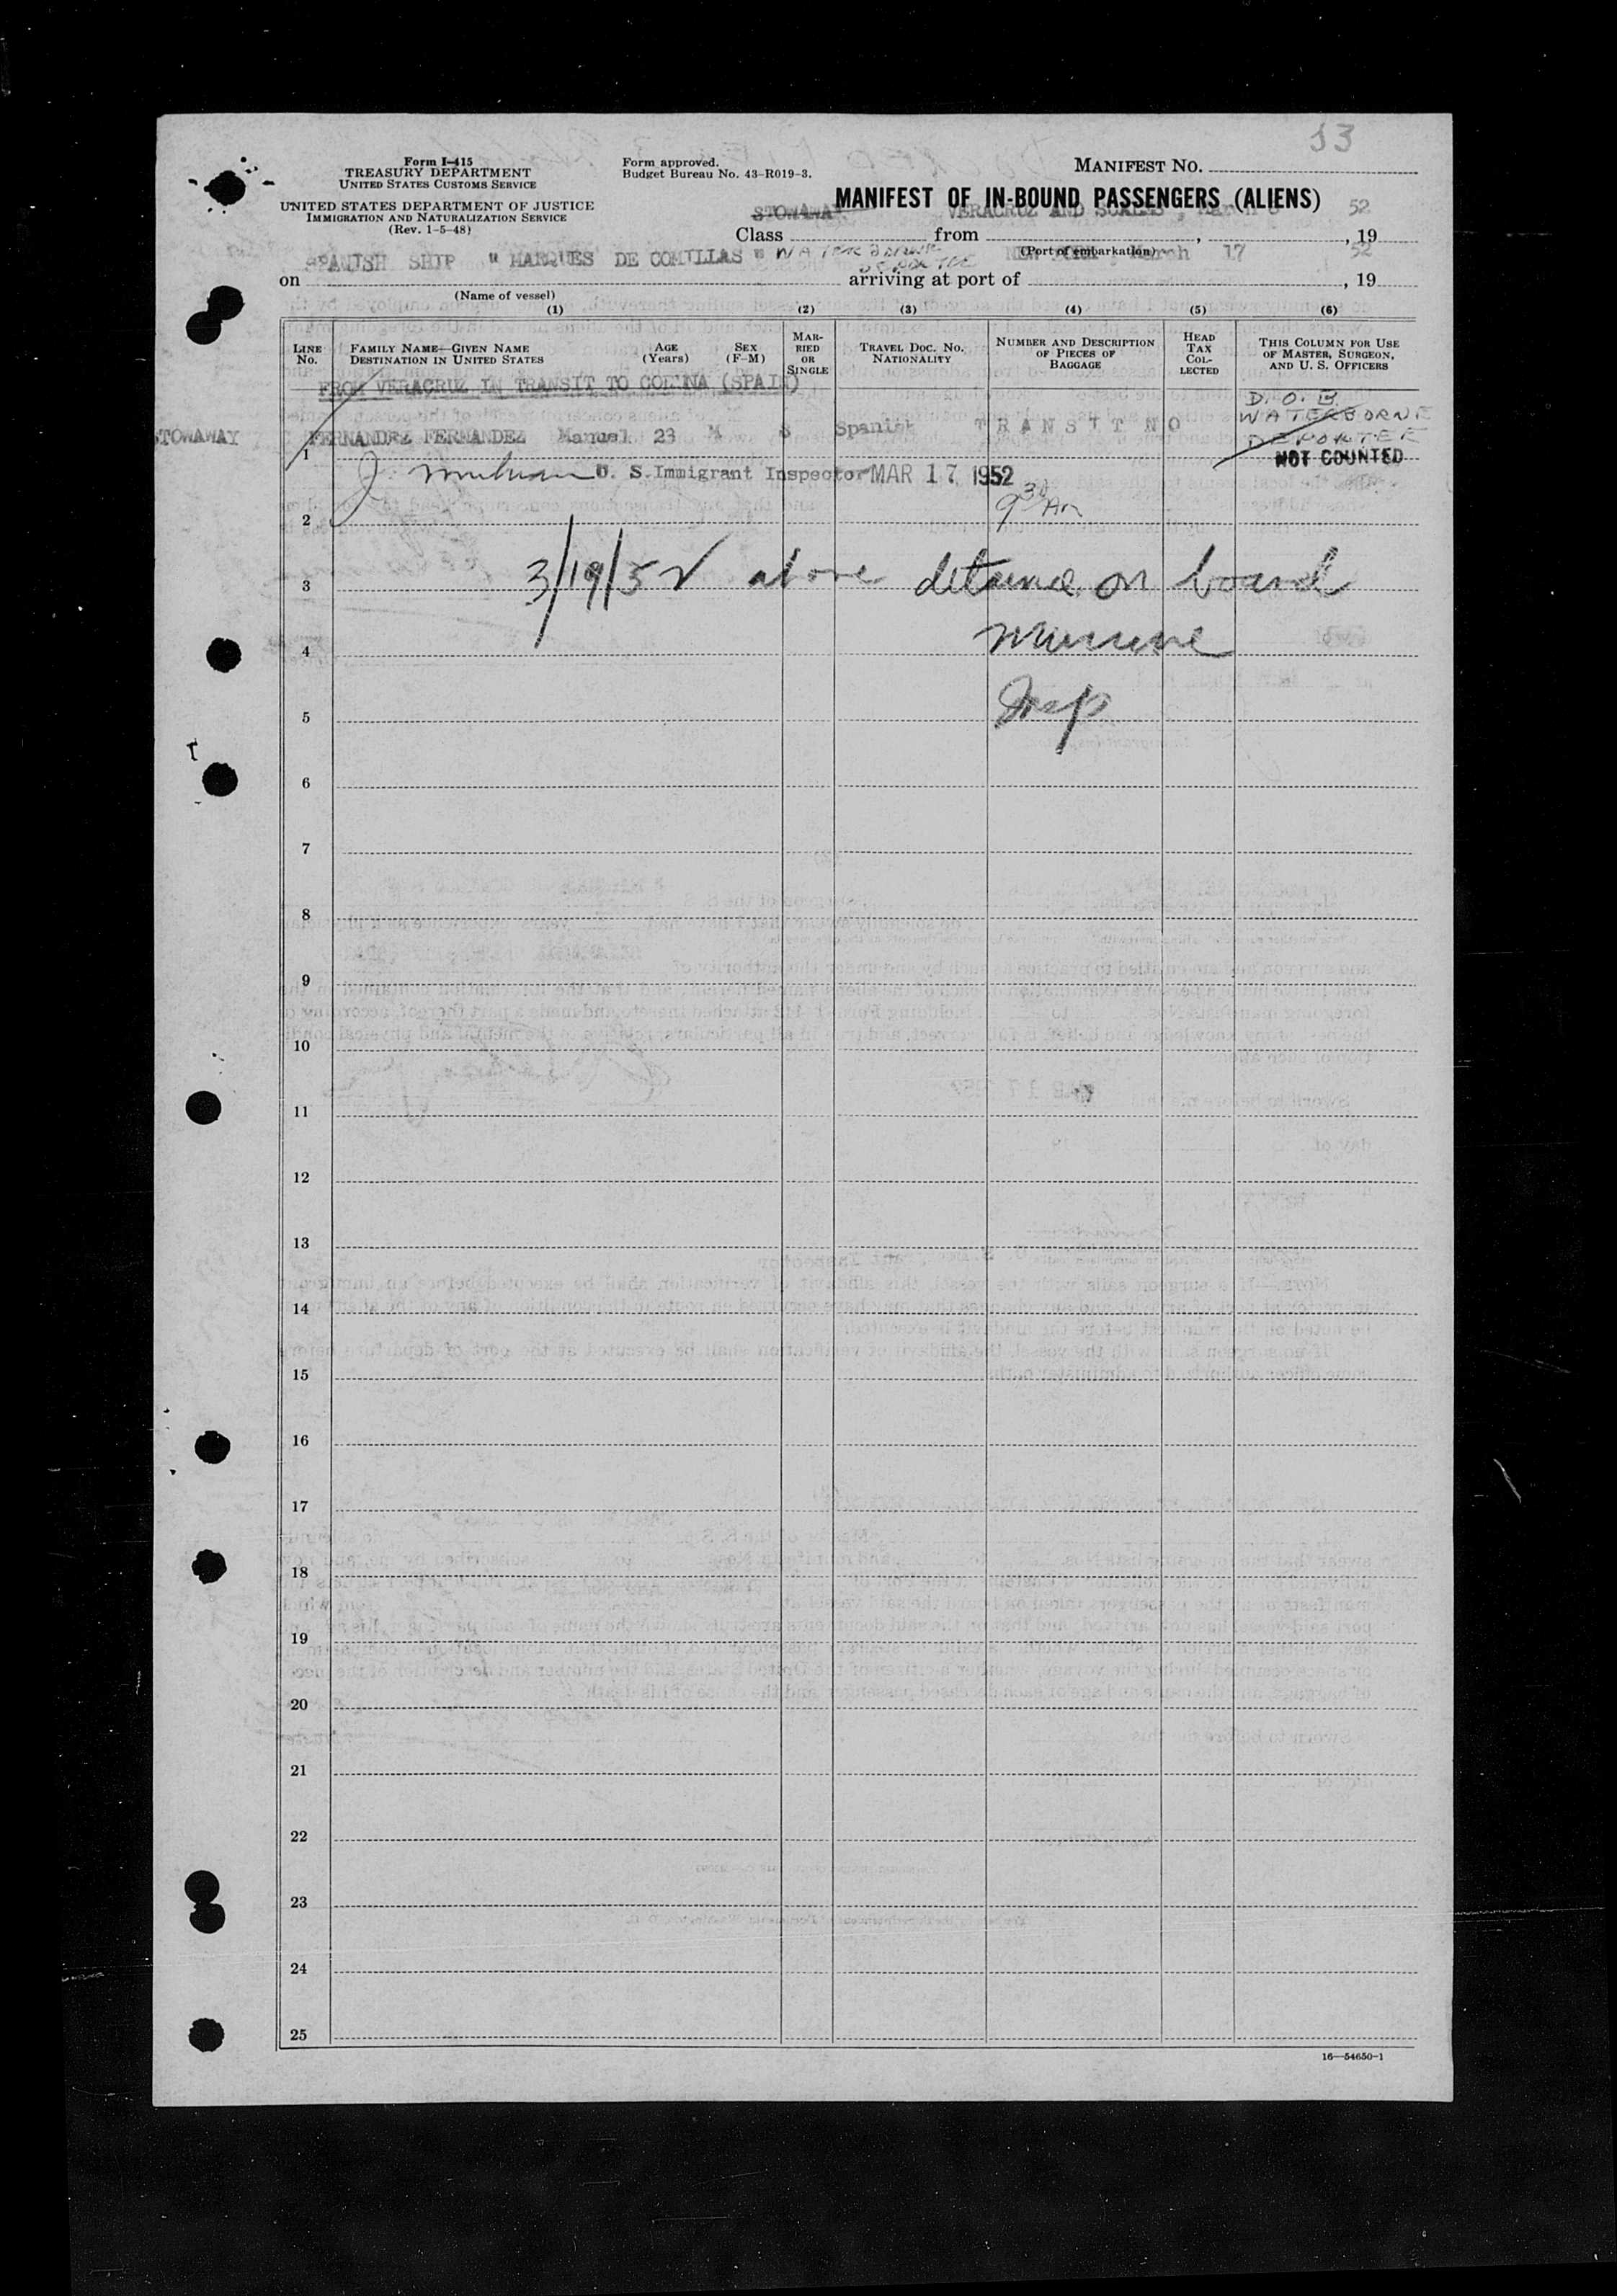 33
Form I-415
TREASURY DEPARTMENT
UNITED STATES CUSTOMS SERVICE
UNITED STATES DEPARTMENT OF JUSTICE
IMMIGRATION AND NATURALIZATION SERVICE
(Rev. 1-5-48)
Form approved.
Budget Bureau No. 43-R019-3.
MANIFEST NO.
MANIFEST OF IN-BOUND PASSENGERS (ALIENS)
STOWAWAY VERACRUZ AND SCALES, March 52
Class from , , 19
(Port of embarkation)
SPANISH SHIP "MARQUES DE COMILLAS" WATERBORNE DEPORTEE NEW YORK March 17 52
on arriving at port of , 19
(Name of vessel)
(1) (2) (3) (4) (5) (6)
LINE NO.
FAMILY NAME—GIVEN NAME
DESTINATION IN UNITED STATES
AGE (Years)
SEX (F-M)
MARRIED OR SINGLE
TRAVEL DOC. NO.
NATIONALITY
NUMBER AND DESCRIPTION OF PIECES OF BAGGAGE
HEAD TAX COLLECTED
THIS COLUMN FOR USE OF MASTER, SURGEON, AND U. S. OFFICERS
FROM VERACRUZ IN TRANSIT TO CORUNA (SPAIN)
D. O. B.
WATERBORNE
DEPORTEE
STOWAWAY FERNANDEZ FERNANDEZ Manuel 23 M S Spanish TRANSIT NO
1 NOT COUNTED
U. S. Immigrant Inspector MAR 17 1952
9 30 AM
2
3/19/52 above detained on board
3
4
Insp
5
6
7
8
9
10
11
12
13
14
15
16
17
18
19
20
21
22
23
24
25
16—54650-1